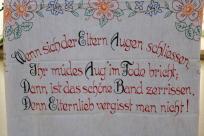 Wenn sich der Eltern Augen schliessen,
Ihr müdes Aug' im Tode bricht;
Dann ist das schöne Band zerrissen,
Denn Elternlieb vergisst man nicht!